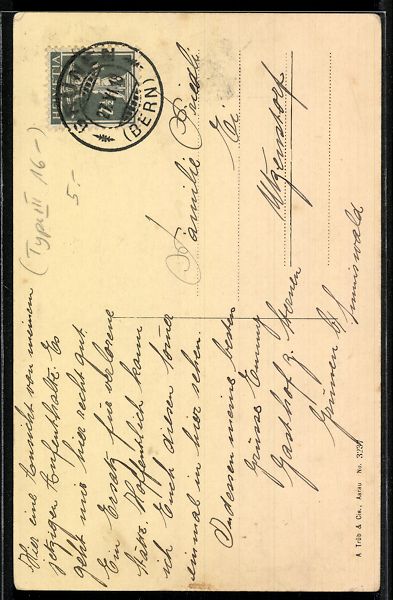 Hier eine Ansicht von meinem
jetzigen Aufenthalte. Es
geht mir hier recht gut.
Ein Ersatz für verlorene
Hoffentlich kann
ich Euch diesen Sommer
einmal in hier sehen.
Indessen meine besten
Grüsse Emmy
Gasthof z. Sternen
Grünen b/ Sumiswald
Familie Friedli
Utzenstorf
HELVETIA
(BERN)
(Typ III 16-)
5.-
A. Trüb & Cie., Aarau No. 3231